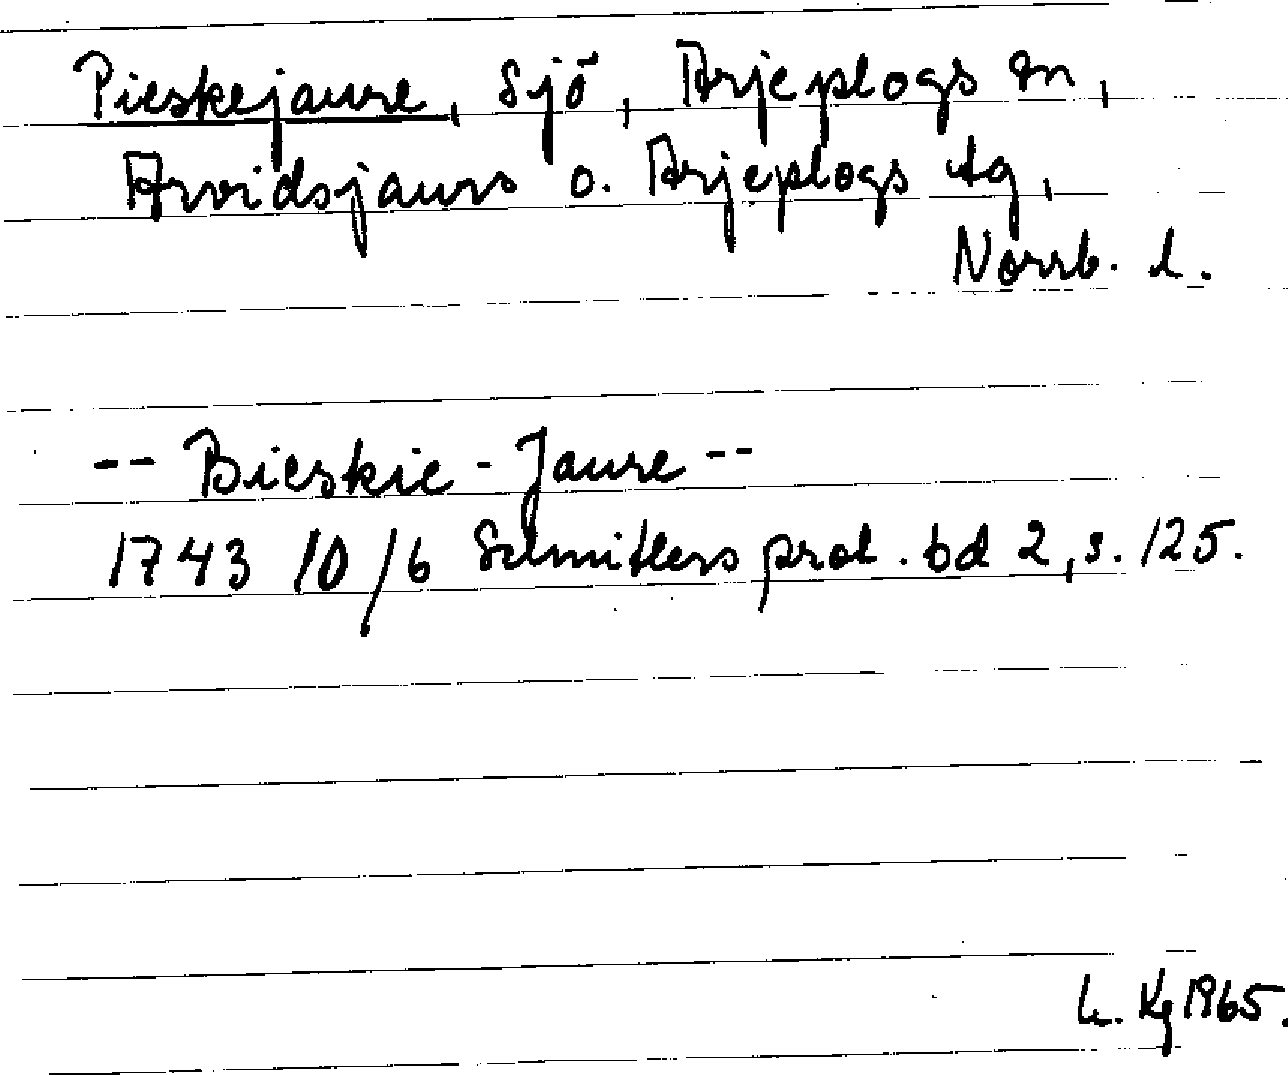 Pieskejaure, sjö, Arjeplogs sn,
Arvidsjaurs o. Arjeplogs tg,
Norrb. l.
-- Bieskie - Jaure --
1743 10/6 Schnitlers prot. bd 2, s. 125.
Kg 1965.